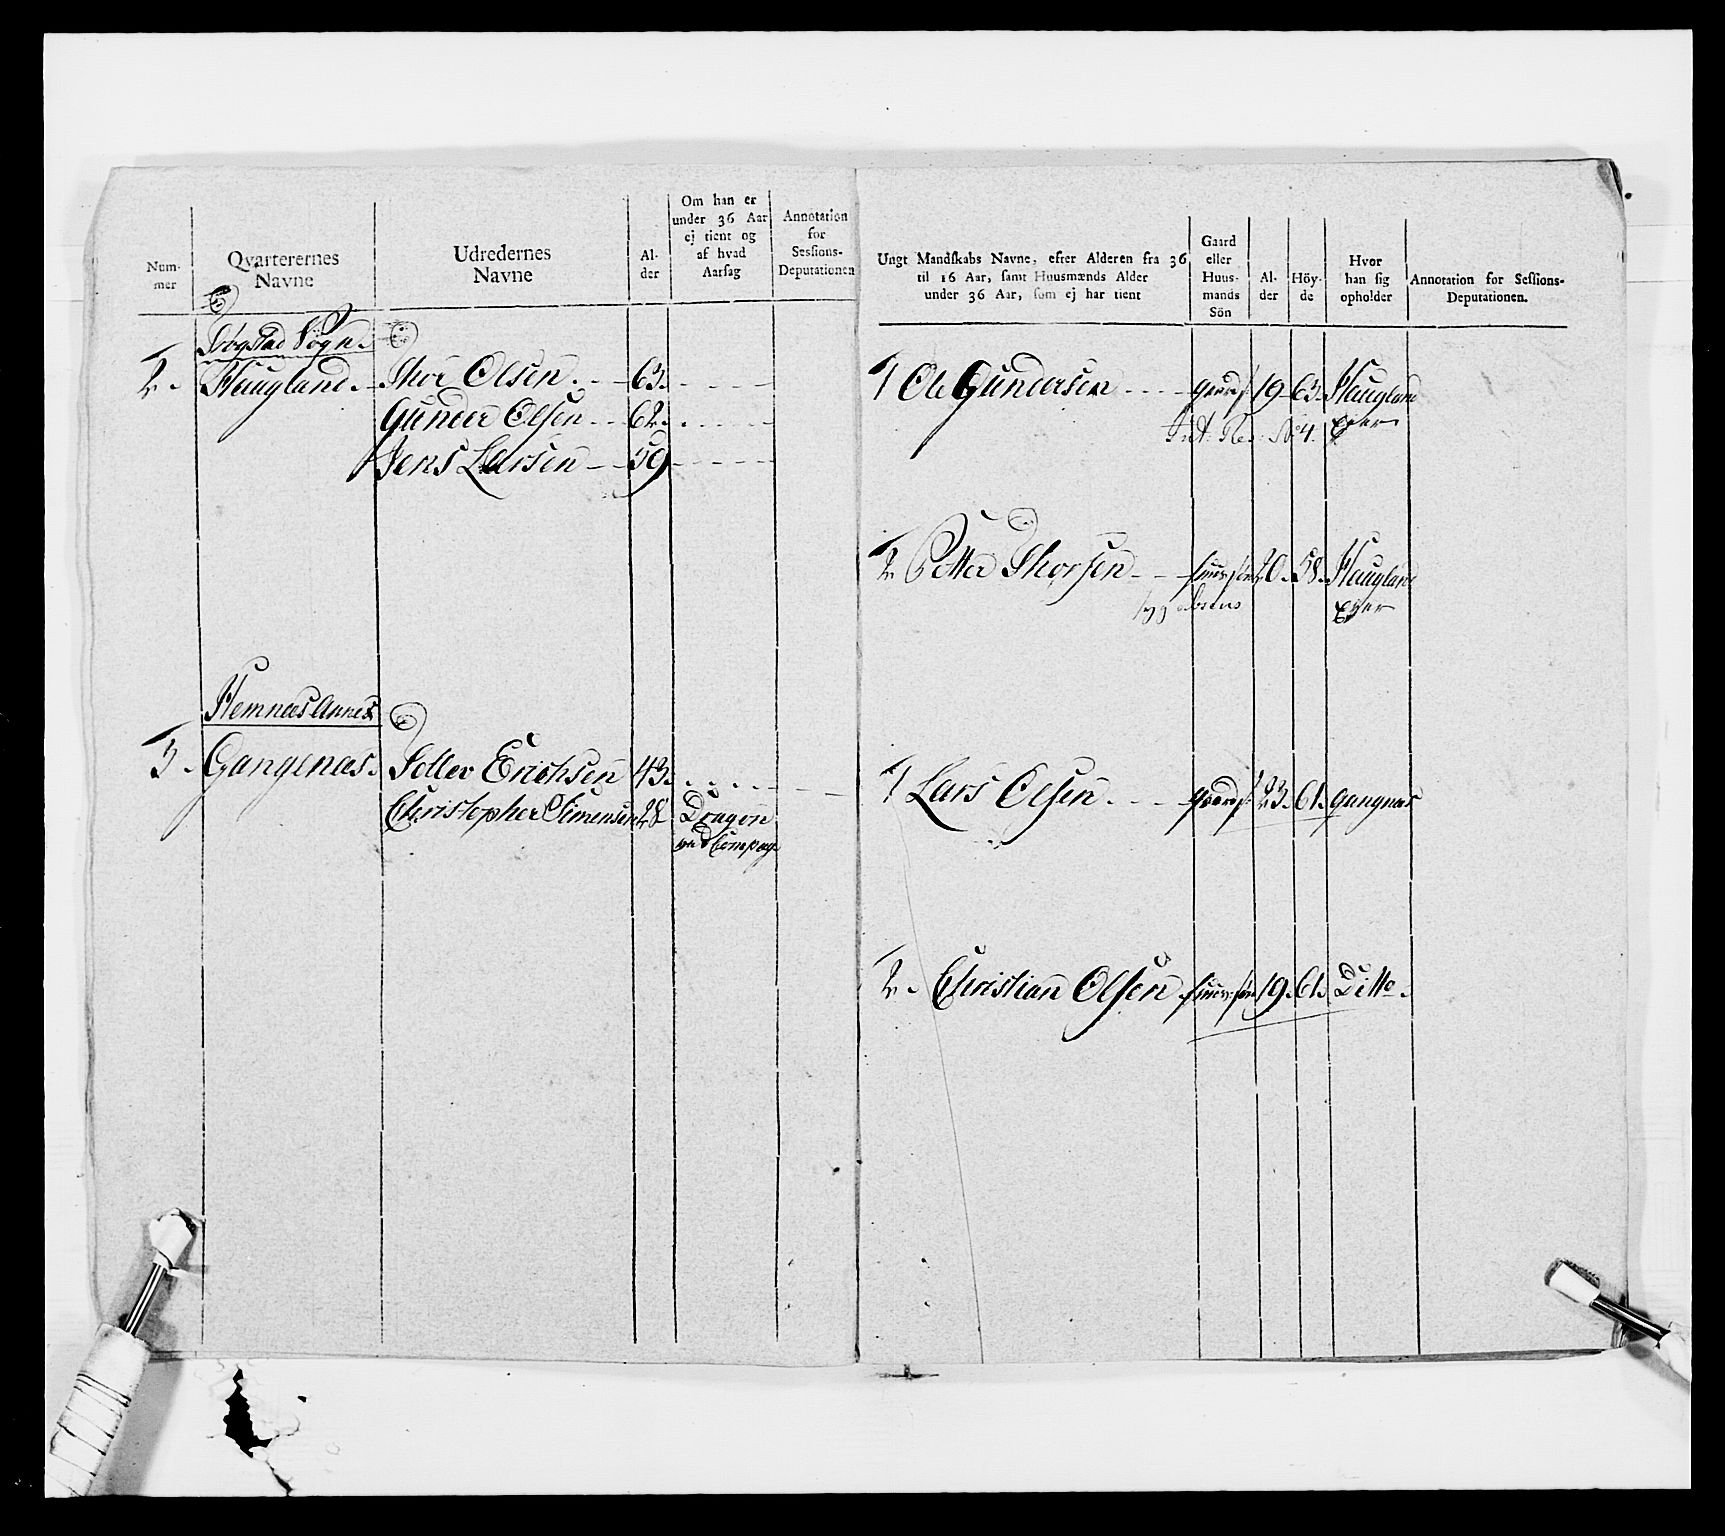 Num-
mer
Qvarterernes
Navne
Udredernes
Navne
Al-
der
Om han er
under 36 Aar
ej tient og
af hvad
Aarsag
Annotation
for
Sessions-
Deputationen
Trögstad Sogn.
2. Haugland. Thor Olsen. 63.
Gunder Olsen 62.
Jens Larsen 59
Hemnæs Annex
3. Gangenæs. Toller Erichsen 43.
Christopher Simensen 28 Dragon
ved Compag.
Ungt Mandskabs Navne, efter Alderen fra 36
til 16 Aar, samt Huusmænds Alder
under 36 Aar, som ej har tient
Gaard
eller
Huus-
mands
Sön
Al-
der
Höy-
de
Hvor
han sig
opholder
Annotation for Sessions-
Deputationen.
1 Ole Gundersen gaards. 19 63. Haugland
Nat. Res. No 4. Eyer
2 Petter Thorsen 20. 58. Haugland
Eyer
1 Lars Olsen gaards. 23. 61. gangnæs
2. Christian Olsen 19. 61. Ditto.